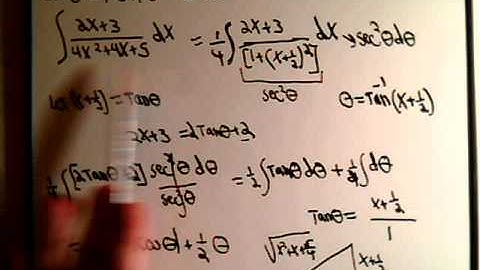 ∫ (2x+3)/(4x²+4x+5) dx = 1/4 ∫ (2x+3)/[1+(x+½)²] dx sec²θdθ
sec²θ
(x+½) = Tanθ θ = Tan⁻¹(x+½)
2x+3 = 2Tanθ+2
∫ [2Tanθ+2] sec²θ dθ / sec²θ = ½∫Tanθ dθ + ½∫dθ
Tanθ = (x+½)/1
= cosθ| + ½ θ
x+½